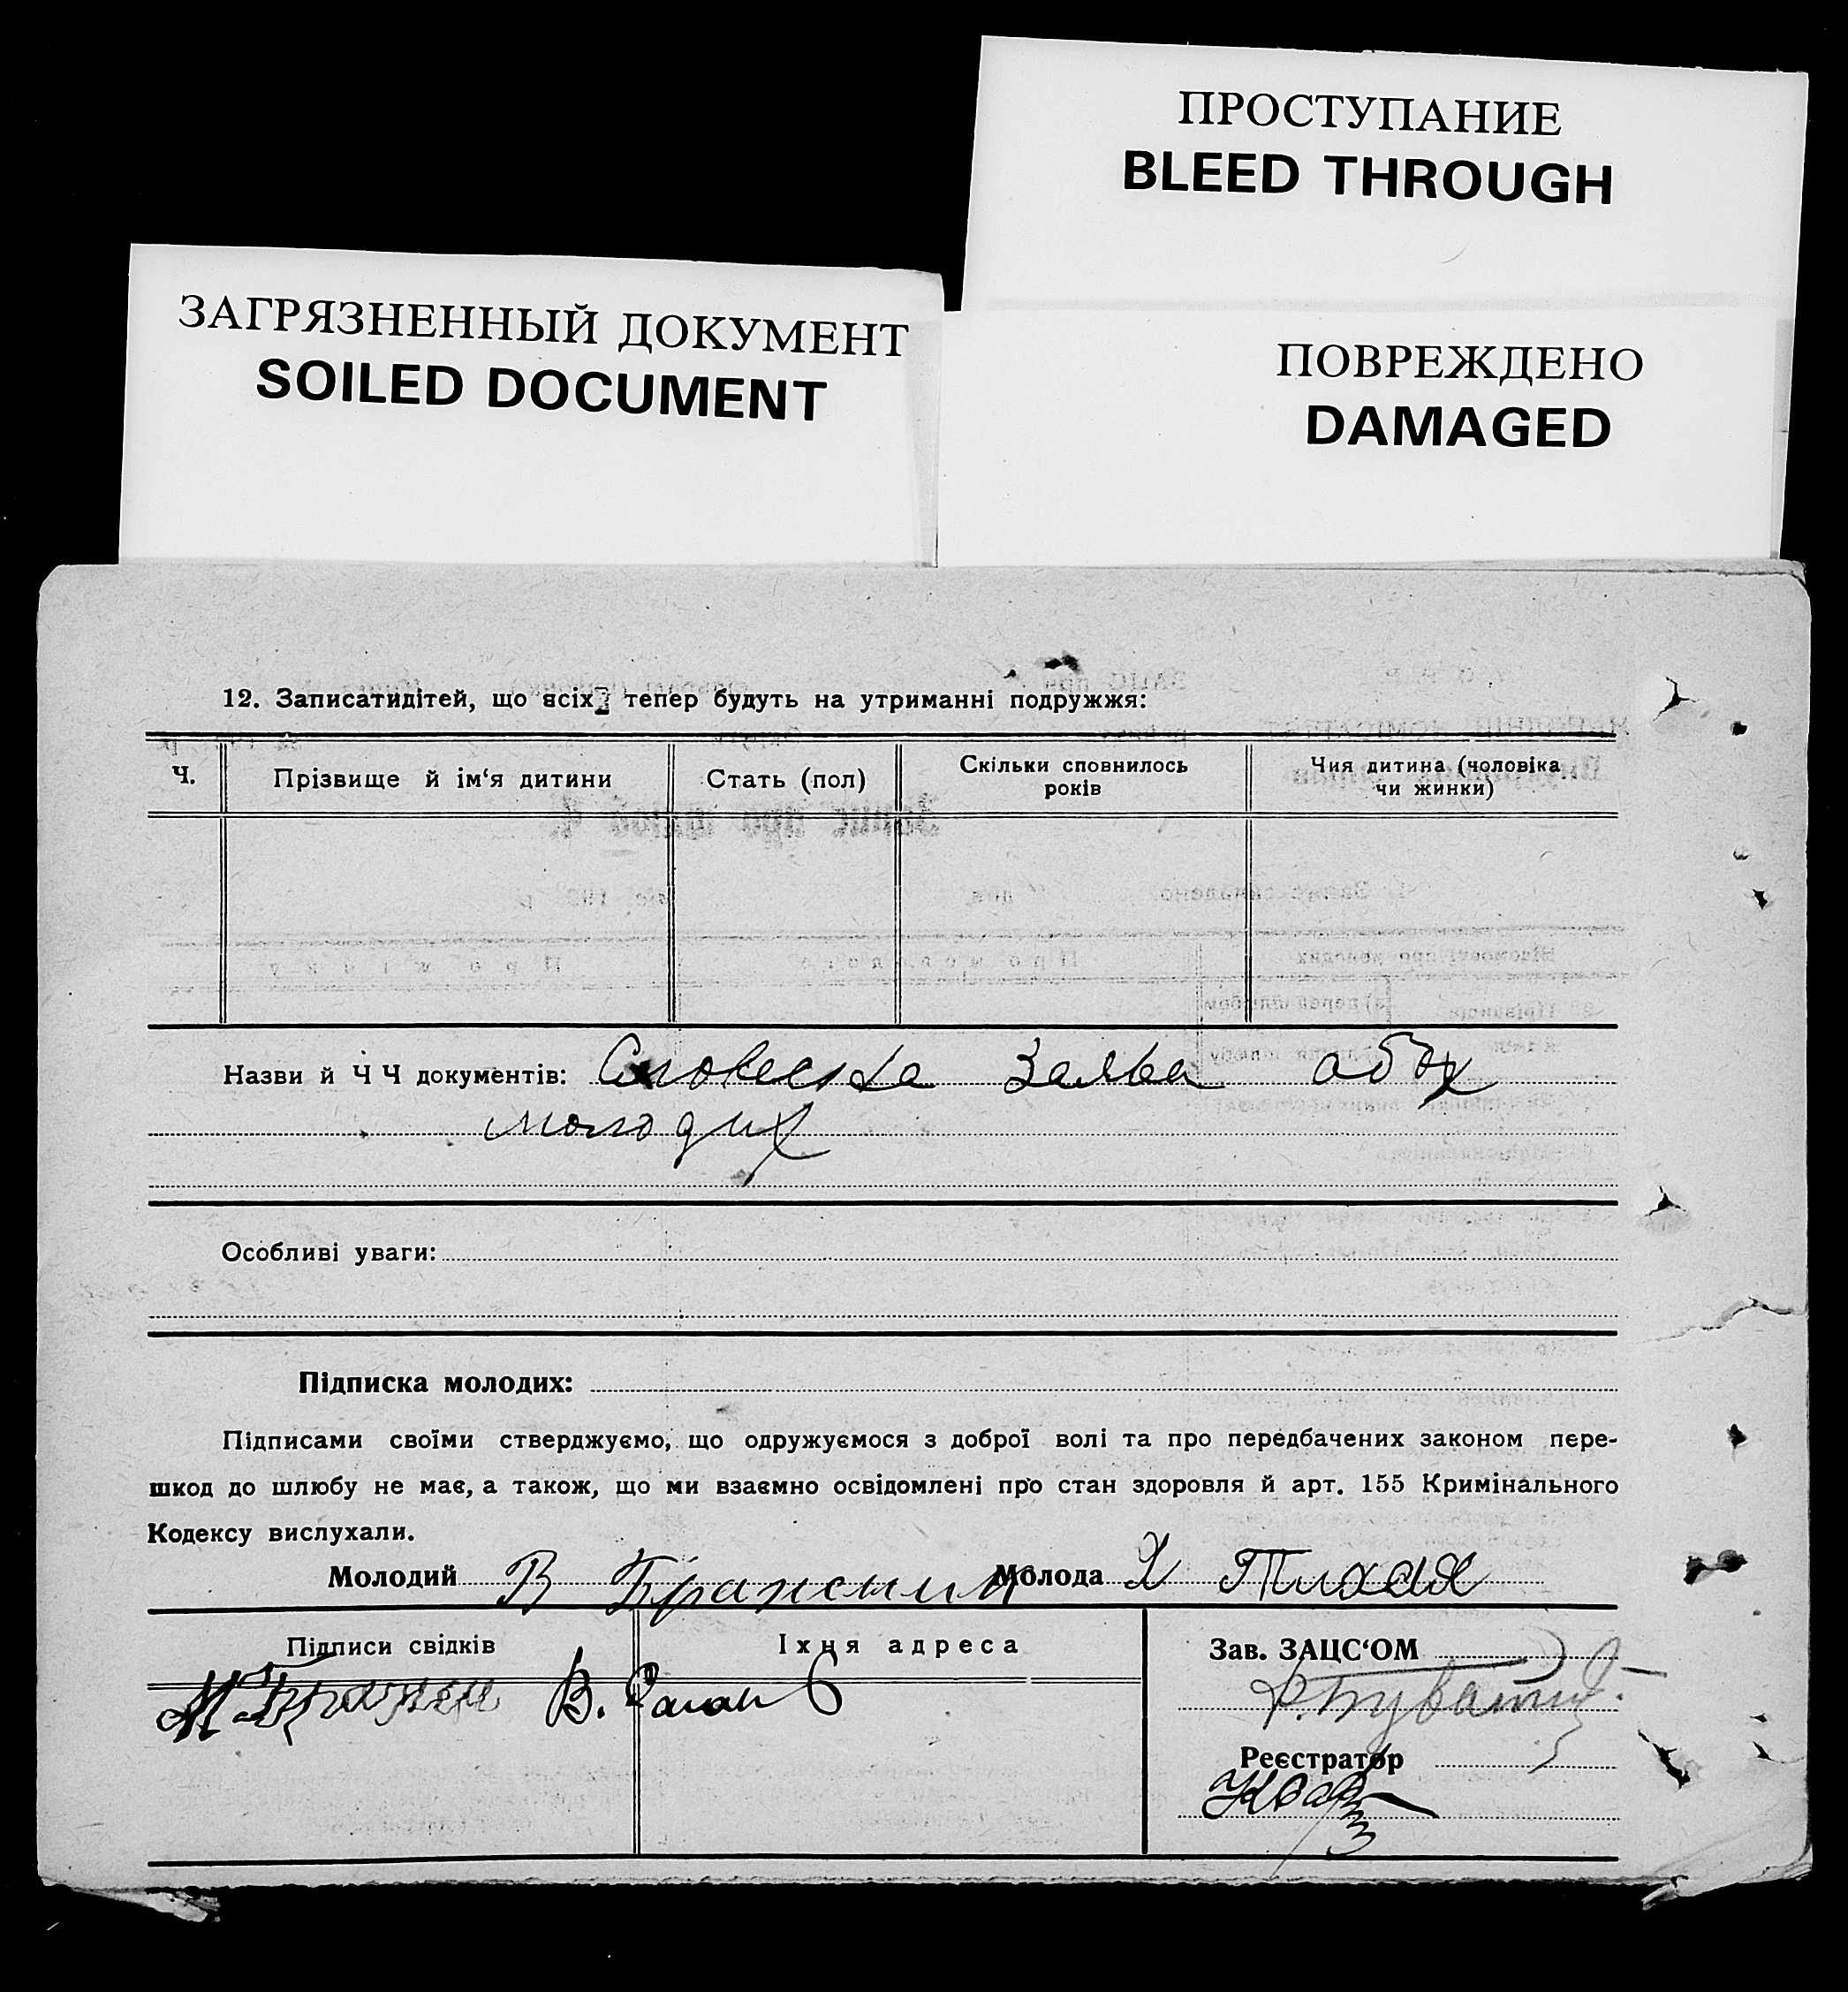 ПРОСТУПАНИЕ
BLEED THROUGH
ЗАГРЯЗНЕННЫЙ ДОКУМЕНТ
SOILED DOCUMENT
ПОВРЕЖДЕНО
DAMAGED
12. Записатидітей, що всіх тепер будуть на утриманні подружжя:
Ч. Прізвище й ім‘я дитини Стать (пол) Скільки сповнилось років Чия дитина (чоловіка чи жинки)
Назви й ЧЧ документів: Словесна Заява обох
молодих
Особливі уваги:
Підписка молодих:
Підписами своїми стверджуємо, що одружуємося з доброї волі та про передбачених законом пере-
шкод до шлюбу не має, а також, що ми взаємно освідомлені про стан здоровля й арт. 155 Кримінального
Кодексу вислухали.
Молодий В Молода Х Тихая
Підписи свідків Їхня адреса Зав. ЗАЦС‘ОМ
М. В.
Реєстратор